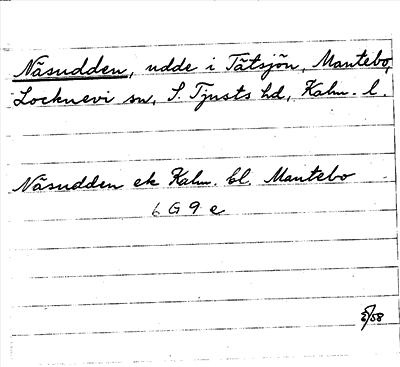 Näsudden, udde i Tåtsjön, Mantebo,
Locknevi sn, S. Tjusts hd, Kalm. l.
Näsudden ek Kalm. bl. Mantebo
6 G 9 e
/58